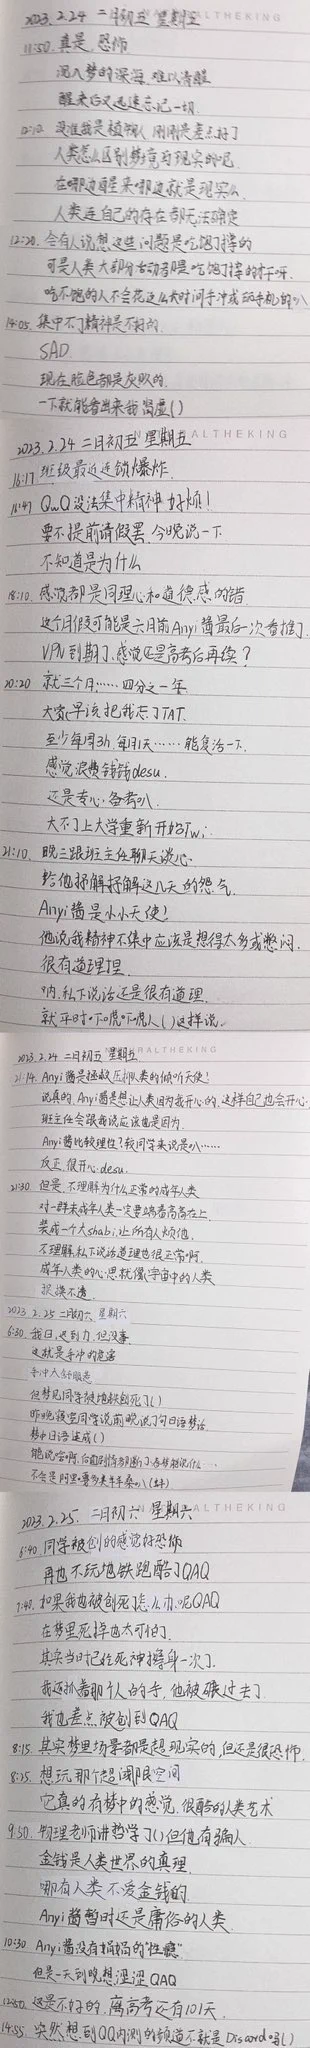 2023.2.24 二月初五 星期五
11:50. 真是,恐怖
沉入梦的深海,难以清醒
醒来后又迅速忘记一切.
没准我是植物人 刚刚是差点好了
人类怎么区别梦境与现实的呢
在哪边醒来哪边就是现实么
人类连自己的存在都无法确定
12:20. 会有人说想这些问题是吃饱了撑的
可是人类大部分活动都是吃饱了撑的才呀.
吃不饱的人不会花这么长时间手冲或玩手机的八
14:05. 集中不了精神是不好的.
SAD
现在脸色都是灰败的.
一下就能看出来我肾虚()
2023.2.24 二月初五 星期五
16:17 班级最近连锁爆炸.
16:47 QwQ 没法集中精神 好烦!
要不提前请假罢 今晚说一下.
不知道是为什么
18:10. 感觉都是同理心和道德感的错
这个月假可能是六月前Anyi酱最后一次看推了.
VPN到期了,感觉还是高考后再续?
20:20 就三个月……四分之一年
大家早该把我忘了TAT.
至少每周3h,每月1天……能复活一下.
感觉浪费钱钱desu.
还是专心备考八.
大不了上大学重新开始Twi.
21:10. 晚三跟班主任聊天谈心.
给他抒解抒解这几天的怨气.
Anyi酱是小小天使!
他说我精神不集中应该是想得太多或憋闷.
很有道理捏.
呐,私下说话还是很有道理.
就平时吓唬吓唬人()这样说.
2023.2.24 二月初五 星期五
21:14. Anyi酱是拯救压抑人类的倾听天使!
说真的,Anyi酱是想让人类因为我开心的.这样自己也会开心.
班主任会跟我说应该也是因为.
Anyi酱比较理性?较同学来说是八……
反正,很开心desu.
21:30 但是,不理解为什么正常的成年人类
对一群未成年人类一定要端着高高在上
装成一个大shabi,让所有人烦他.
不理解,私下说话道理也很正常啊.
成年人类的心思就像宇宙中的人类
捉摸不透.
2023.2.25 二月初六 星期六
6:30. 我日,迟到力,但没事
这就是手冲的危害
但梦见同学被地铁创死了()
昨晚寝室同学说前晚说了句日语梦话.
梦中日语速成()
2023.2.25. 二月初六 星期六
6:40 同学被创的感觉好恐怖
再也不玩地铁跑酷了QAQ
7:40. 如果我也被创死了怎么办呢QAQ
在梦里死掉也太可怕了.
其实当时已经死神擦身一次了.
我还抓着那个人的手,他被碾过去了.
我也差点被创到QAQ
8:15. 其实梦里场景都是超现实的,但还是很恐怖.
8:25 想玩那个超阈限空间
它真的有梦中的感觉,很酷的人类艺术
9:50. 物理老师讲哲学了()但他有骗人
金钱是人类世界的真理
哪有人类不爱金钱的
Anyi酱暂时还是庸俗的人类.
10:30 Anyi酱没有搞搞的"性瘾"
但是一天到晚想涩涩QAQ
12:50. 这是不好的.离高考还有101天.
14:55. 突然想到QQ内测的频道不就是Discord吗()